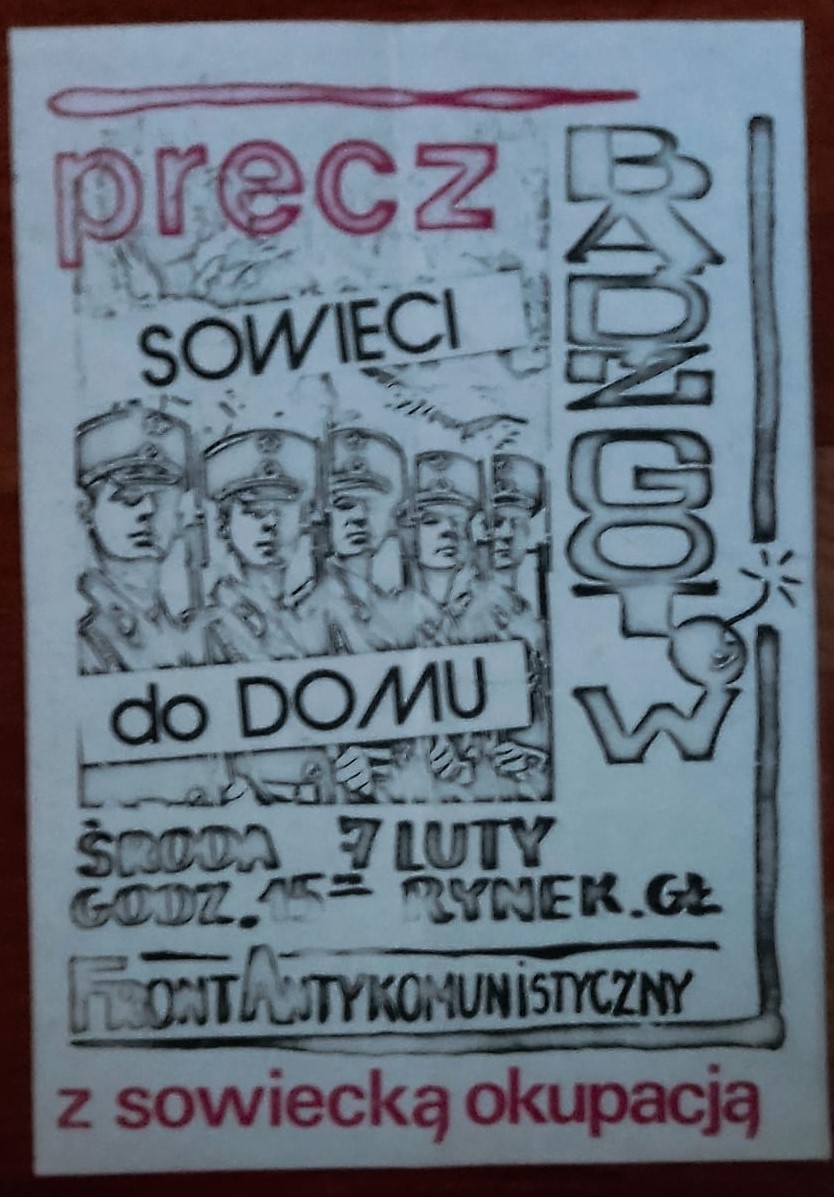 precz
SOWIECI
do DOMU
BĄDŹ GOTÓW
ŚRODA 7 LUTY
GODZ. 15= RYNEK. GŁ
FRONT ANTYKOMUNiSTYCZNY
z sowiecką okupacją